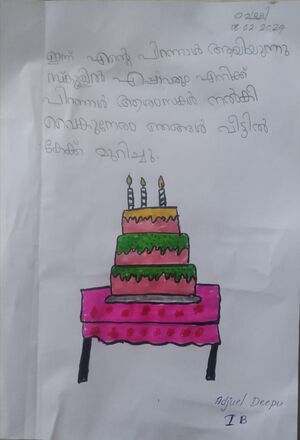 വെള്ളി
16.02.2024
ഇന്ന് എന്റെ പിറന്നാൾ ആയിരുന്നു
സ്കൂളിൽ എല്ലാവരും എനിക്ക്
പിറന്നാൾ ആശംസകൾ നൽകി
വൈകുന്നേരം ഞങ്ങൾ വീട്ടിൽ
കേക്ക് മുറിച്ചു.
Adjuel Deepu
I B